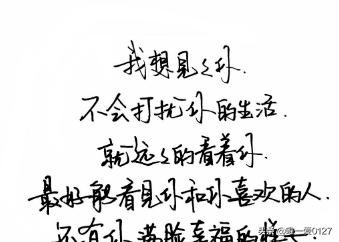 我想见々你.
不会打扰你的生活.
就远々的看着你.
最好能看见你和你喜欢的人.
还有你满脸幸福的样子.
头条
爱0127